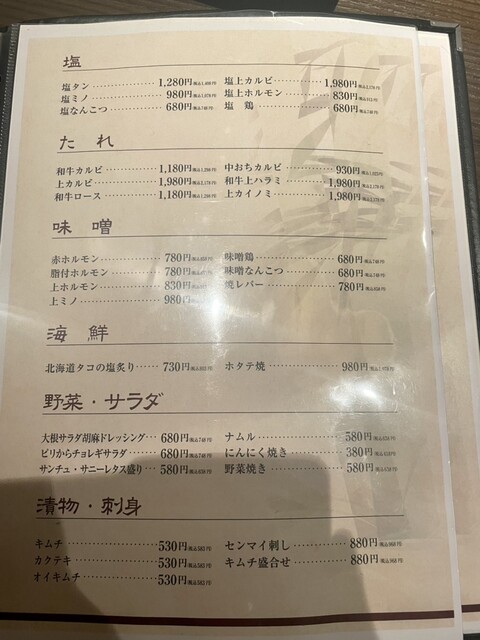 塩
塩タン 1,280円 塩上カルビ 1,980円
塩ミノ 980円 塩上ホルモン 830円
塩なんこつ 680円 塩 鶏 680円
たれ
和牛カルビ 1,180円 中おちカルビ 930円
上カルビ 1,980円 和牛上ハラミ 1,980円
和牛ロース 1,180円 上カイノミ 1,980円
味噌
赤ホルモン 780円 味噌鶏 680円
脂付ホルモン 780円 味噌なんこつ 680円
上ホルモン 830円 焼レバー 780円
上ミノ 980
海鮮
北海道タコの塩炙り 730円 ホタテ焼 980円
野菜・サラダ
大根サラダ胡麻ドレッシング 680円 ナムル 580円
ピリからチョレギサラダ 680円 にんにく焼き 380円
サンチュ・サニーレタス盛り 580円 野菜焼き 580円
漬物・刺身
キムチ 530円 センマイ刺し 880円
カクテキ 530円 キムチ盛合せ 880円
オイキムチ 530円